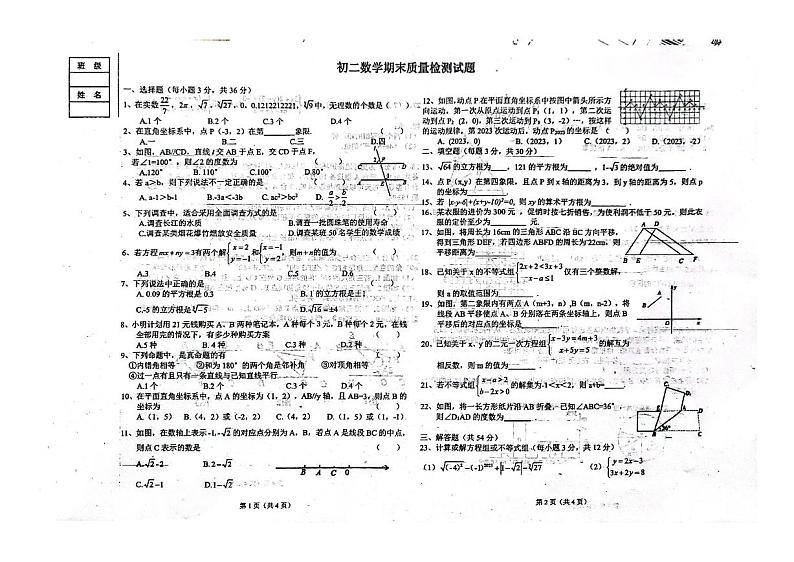 班 级
姓 名
初二数学期末质量检测试题
一、选择题（每小题3分，共36分）
1、在实数22/7，2π，√7，∛27，0，0.1212212221，∛9中，无理数的个数是（ ）
A.1个 B.2个 C.3个 D.4个
2、在直角坐标系中，点P（-3，2）在第 象限 （ ）
A.一 B.二 C.三 D.四
3、如图，AB//CD，直线 交AB于点E，交CD于点F，
若∠1=100°，则∠2的度数为 （ ）
A.120° B.110° C.100° D.80°
4、若a＞b，则下列说法不一定正确的是 （ ）
A. a-1＞b-1 B.-3a＜-3b C. ac²＞bc² D. a/2＞b/2
5、下列调查中，适合采用全面调查方式的是 （ ）
A.调查长江的水质 B.调查一批圆珠笔的使用寿命
C.调查某类烟花爆竹燃放安全质量 D.调查某班50名学生的数学成绩
6、若方程mx+ny=3有两个解{x=2 y=-1和{x=-1 y=2，则m+n的值为 （ ）
A.3 B.4 C.5 D.6
7、下列说法中正确的是 （ ）
A. 0.09的平方根是0.3 B. 1的立方根是±1
C.-5的立方根是∛-5 D.√16=±4
8、小明计划用21元钱购买A、B两种笔记本，A种每个3元，B种每个2元，在钱
全部用完的情况下，有多少种购买方案 （ ）
A.5种 B. 4种 C.3种 D.2种
9、下列命题中，是真命题的有 （ ）
①内错角相等 ②和为180°的两个角是邻补角 ③对顶角相等
④过一点有且只有一条直线与已知直线平行
A.1个 B.2个 C.3个 D.4个
10、在平面直角坐标系中，点A的坐标为（1，2），AB//y轴，且AB=3，则点B的
坐标为 （ ）
A.（1，5） B.（4，2）或（-2，2） C.（4，2） D.（1，5）或（1，-1）
11、如图，在数轴上表示-1,-√2的对应点分别为A，B，若点A是线段BC的中点，
则点C表示的数是 （ ）
A.√2-2 B.2-√2
C.√2-1 D.1-√2
B A C 0
第1页（共4页）
12、如图，动点P在平面直角坐标系中按图中箭头所示方
向运动，第一次从原点运动到点P₁（1，1），第二次运
动到点P₂（2，0），第三次运动到P₃（3，-2）…，按这样
的运动规律，第2023次运动后，动点P₂₀₂₃的坐标是（ ）
A.（2023，0） B.（2023，1） C.（2023，2） D.（2023，-2）
二、填空题（每题3分，共30分）
13、√64的立方根为 ，121的平方根为 ，1-√3的绝对值为 .
14、点P（x,y）在第四象限，且点P到x轴的距离为3，到y轴的距离为5，则点P
的坐标为
15、若|x-y-6|+(x+y-10)²=0，则xy的算术平方根为
16、某衣服的进价为300元，促销时按七折销售，为使利润不低于50元，则此衣
服的定价至少为
17、如图，将周长为16cm的三角形ABC沿BC方向平移，
得到三角形DEF，若四边形ABFD的周长为22cm，则
平移距离为
A D
B E C F
18、已知关于x的不等式组{2x+2<3x+3 -x-a≤1仅有三个整数解，
则a的取值范围为
19、如图，第二象限内有两点A（m+3，n）,B（m，n-2），将
线段AB平移使点A、B分别落在两条坐标轴上，则点B
平移后的对应点的坐标是
20、已知关于x、y的二元一次方程组{x-3y=4m+3 x+5y=5的解互为
相反数，则m的值为
21、若不等式组{x-a>2 b-2x>0的解集为-1<x<2，则a+b=
22、如图，将一长方形纸片沿AB折叠，已知∠ABC=36°
则∠D₁AD的度数为
三、解答题（共54分）
23、计算或解方程组或不等式组（每小题3分，共12分）
（1）√(-4)²-(-1)²⁰²³+|1-√2|-∛27 （2）{y=2x-3 3x+2y=8
第2页（共4页）